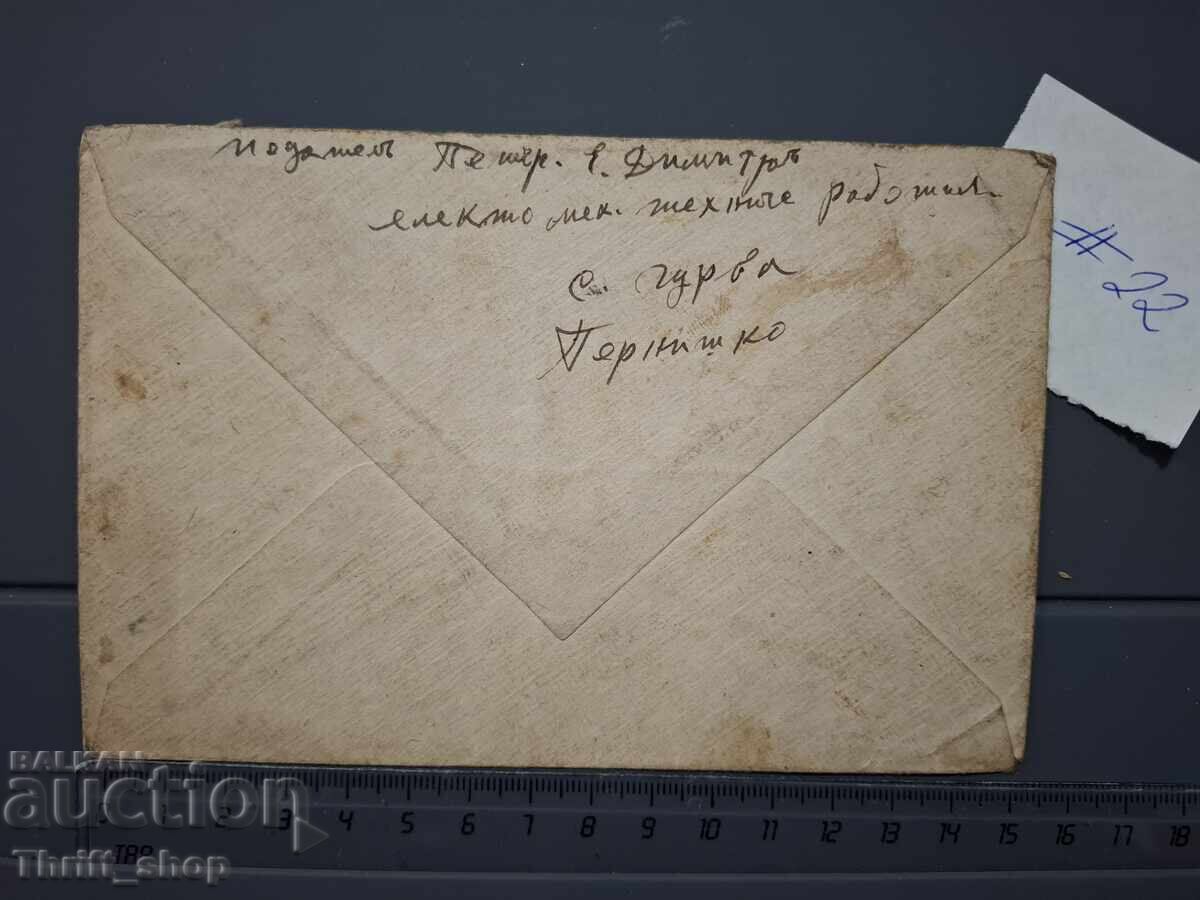 Подателъ Петър. Е. Димитров
електо мех. техние работил.
с. Чурва
Пернишко
# 22
BALKAN
auction
Thrift_shop
0 1 2 3 4 5 6 7 8 9 10 11 12 13 14 15 16 17 18